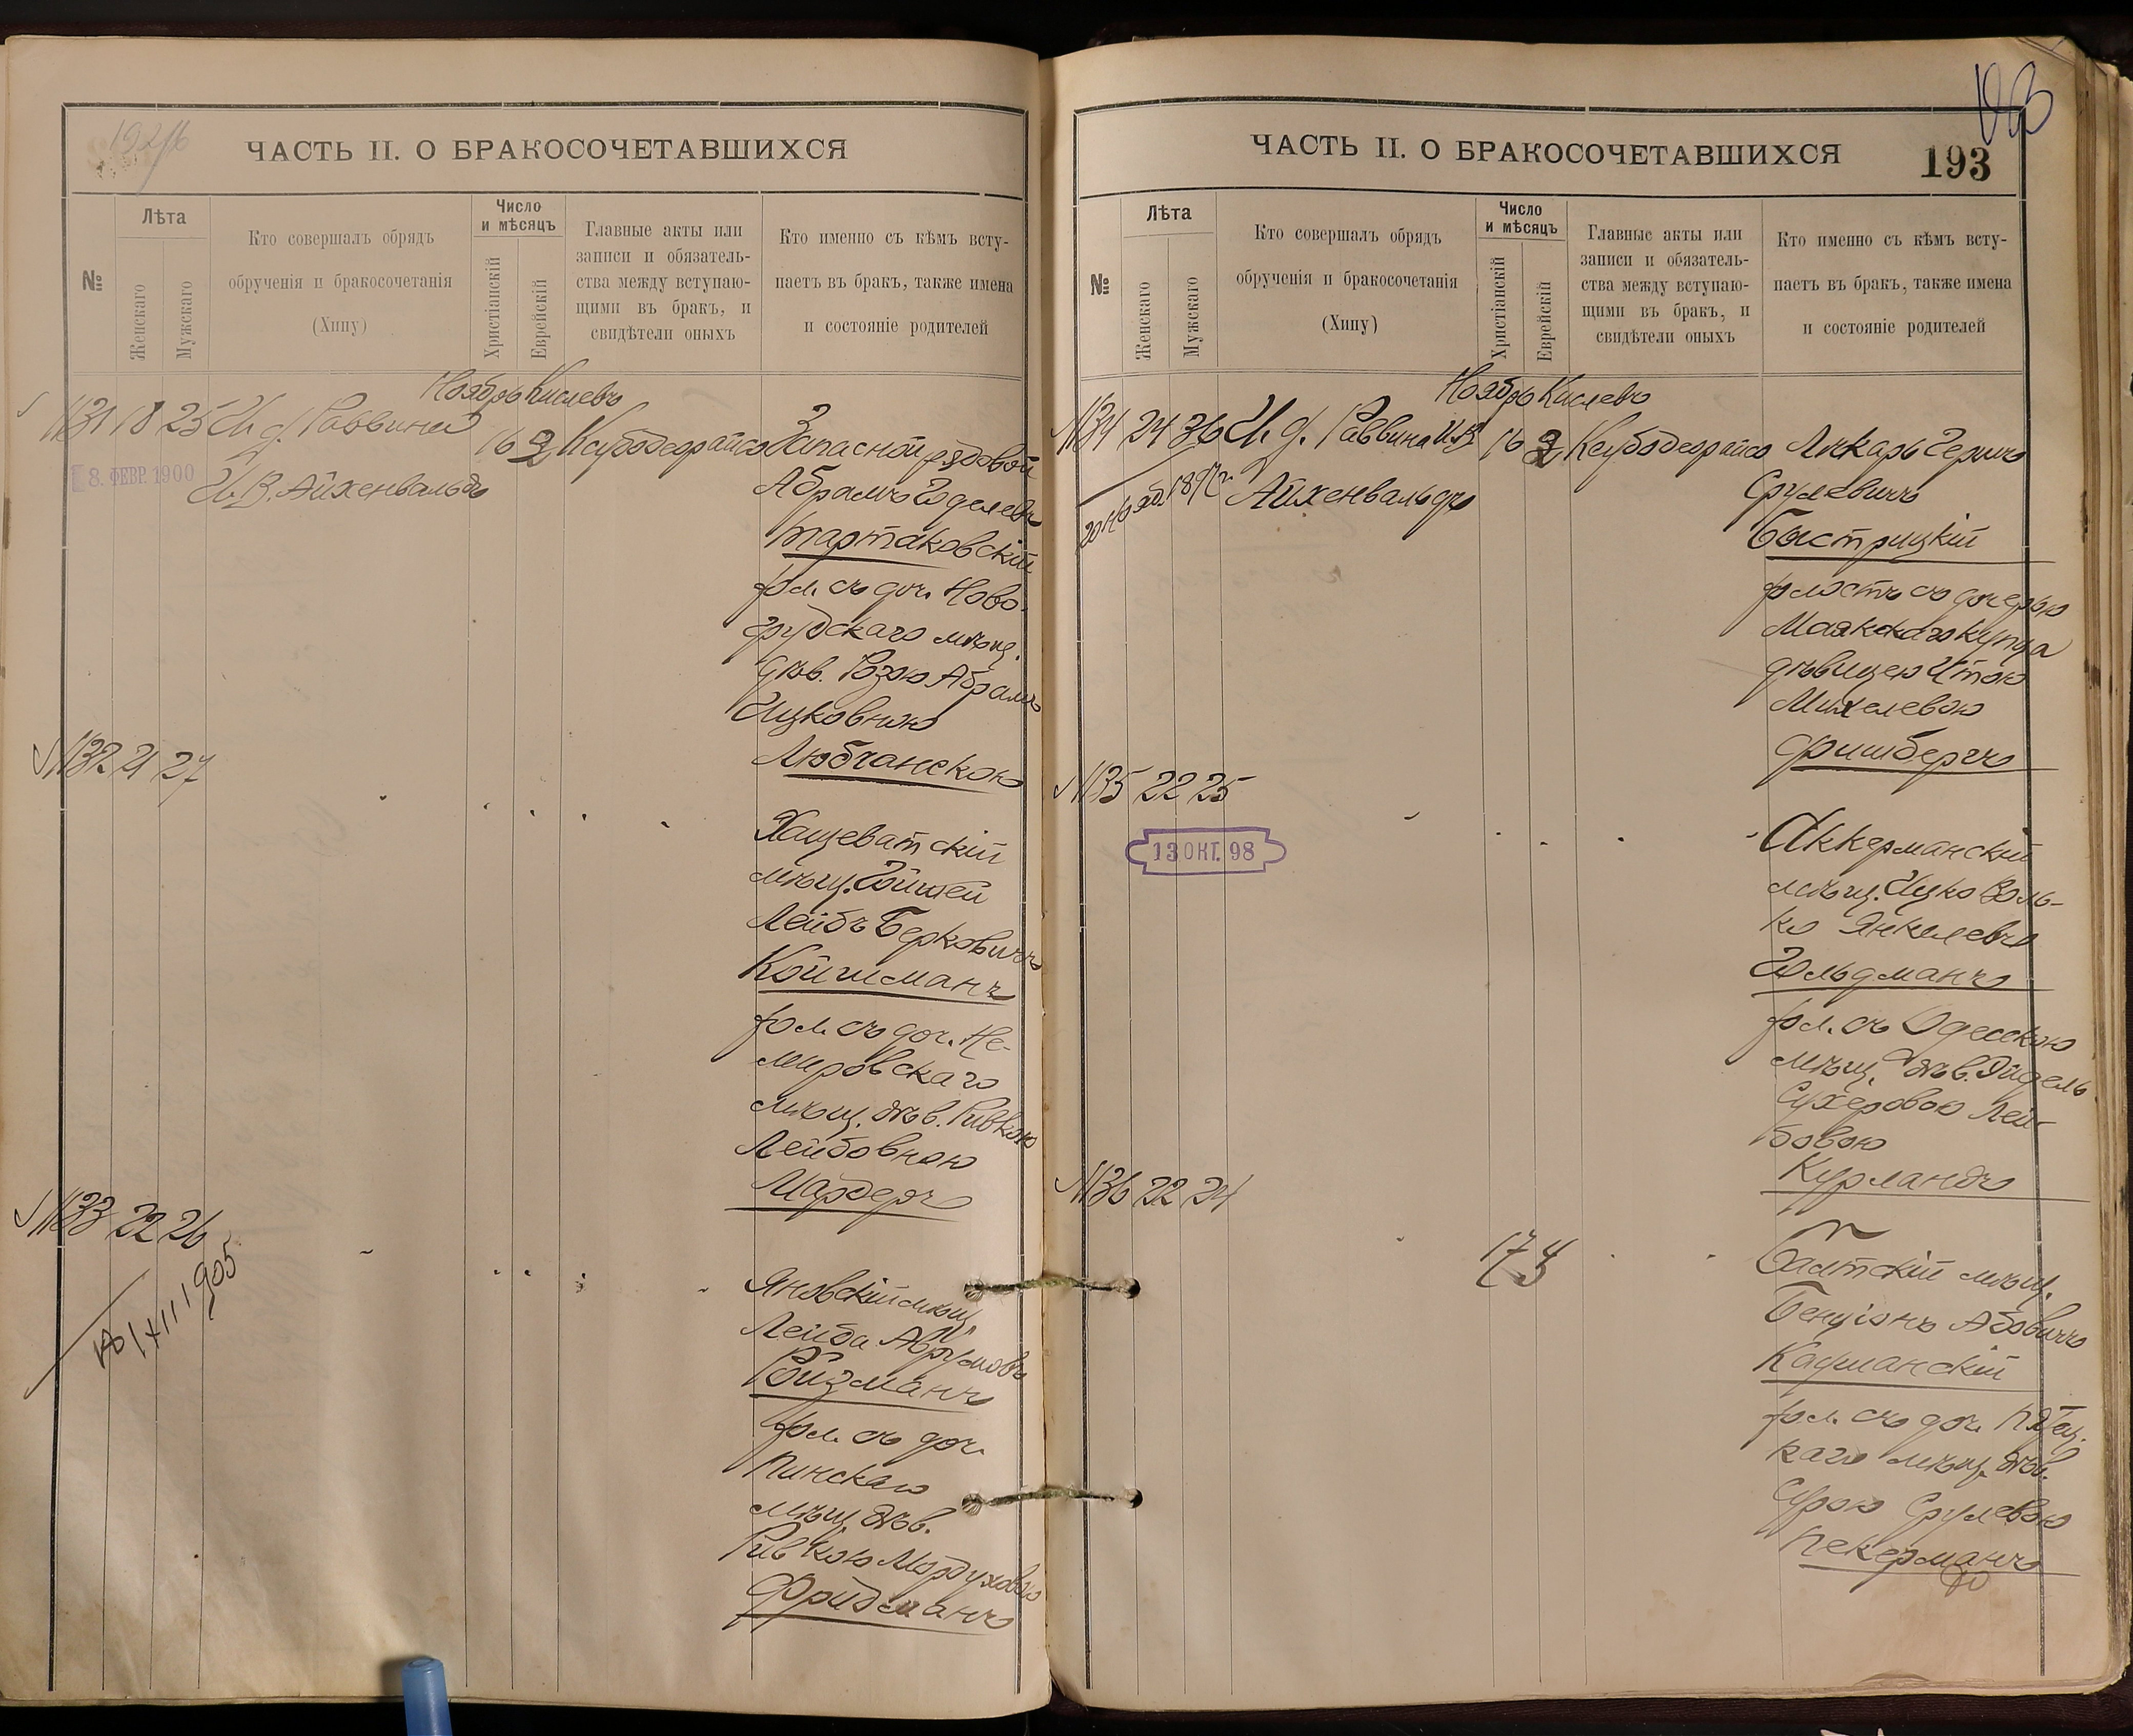 192/б
ЧАСТЬ II. О БРАКОСОЧЕТАВШИХСЯ
№
Лѣта
Женскаго
Мужскаго
Кто совершалъ обрядъ
обрученія и бракосочетанія
(Хипу)
Число
и мѣсяцъ
Христіанскій
Еврейскій
Главные акты или
записи и обязатель-
ства между вступаю-
щими въ бракъ, и
свидѣтели оныхъ
Кто именно съ кѣмъ всту-
паетъ въ бракъ, также имена
и состояніе родителей
Ноябрь Кислевъ
№31 18 25 И. д. Раввина 16 2
8. ФЕВР. 1900
И. В. Айхенвальдъ
Запасной рядовой
Абрамъ Годелевъ
Тартаковскій
хол. съ доч. Ново-
грудскаго мѣщ.
дѣв. Розою Абрамъ
Ицковною
Любчанскою
№32 21 27
Хащеватскій
мѣщ. Гойшей
Лейбъ Берковичъ
Койшманъ
хол. съ доч. Не-
мировскаго
мѣщ. дѣв. Ривкою
Лейбовною
Мардеръ
№33 22 26
1905
Яновскій мѣщ.
Лейба Аврумовъ
Ройзманъ
хол. съ доч.
Пинскаго
мѣщ. дѣв.
Ривкою Мордуховою
Фридманъ
193
ЧАСТЬ II. О БРАКОСОЧЕТАВШИХСЯ
193
№
Лѣта
Женскаго
Мужскаго
Кто совершалъ обрядъ
обрученія и бракосочетанія
(Хипу)
Число
и мѣсяцъ
Христіанскій
Еврейскій
Главные акты или
записи и обязатель-
ства между вступаю-
щими въ бракъ, и
свидѣтели оныхъ
Кто именно съ кѣмъ всту-
паетъ въ бракъ, также имена
и состояніе родителей
Ноябрь Кислевъ
№34 24 36 И. д. Раввина И. В. 16 2
20 Нояб. 1897 г.
Айхенвальдъ
Лѣкарь Гершъ
Срулевичъ
Быстрицкій
холостъ съ дочерью
Маякскаго купца
дѣвицею Итою
Михелевою
Фришбергъ
№35 22 25
13 ОКТ. 98
Аккерманскій
мѣщ. Ицко Воль-
ко Янкелевъ
Гольдманъ
хол. съ Одесскою
мѣщ. дѣв. Эйдель
Сухеровою Лей-
бовою
Курландъ
№36 22 24
17 3
Балтскій мѣщ.
Бенціонъ Абовичъ
Кадманскій
хол. съ доч.
каго мѣщ. дѣв.
Сурою Срулевою
Пекерманъ